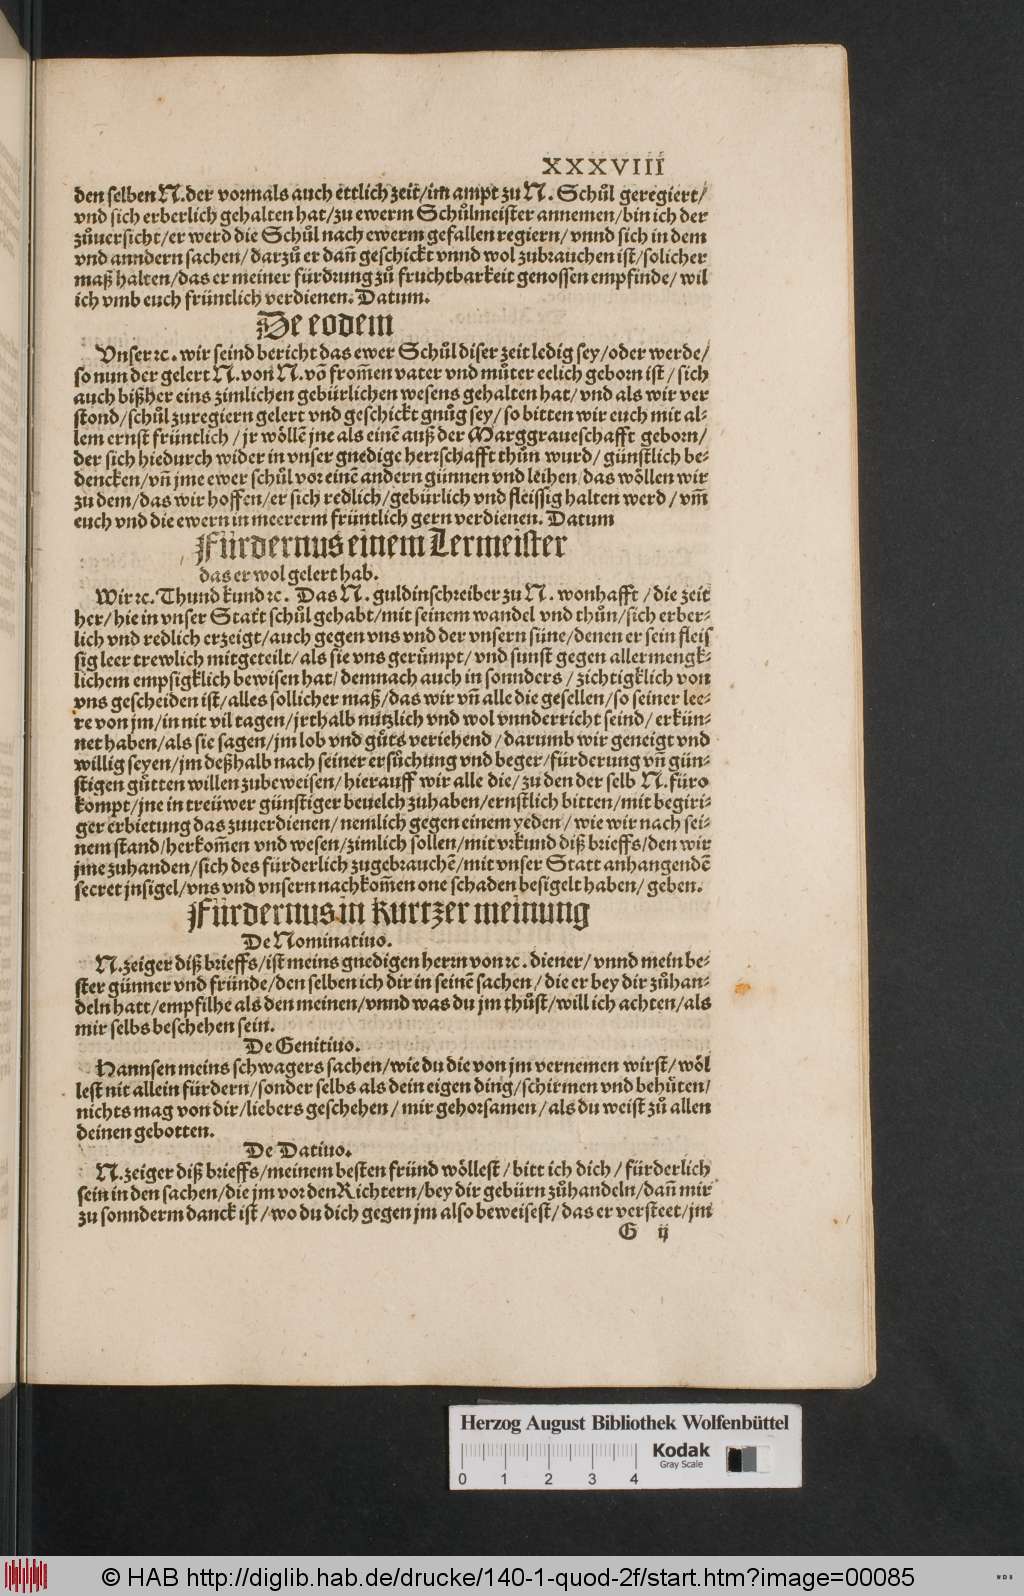 XXXVIII
den selben N. der vormals auch ettlich zeit/im ampt zu N. Schůl geregiert/
vnd sich erberlich gehalten hat/zu ewerm Schůlmeister annemen/bin ich der
zůuersicht/er werd die Schůl nach ewerm gefallen regiern/vnnd sich in dem
vnd anndern sachen/darzů er dañ geschickt vnnd wol zubrauchen ist/solicher
maß halten/das er meiner fürdrung zů fruchtbarkeit genossen empfinde/wil
ich vmb euch früntlich verdienen. Datum.
De eodem
Vnser ꝛc. wir seind bericht das ewer Schůl diser zeit ledig sey/oder werde/
so nun der gelert N. von N. võ from̃en vater vnd můter eelich geborn ist/sich
auch bißher eins zimlichen gebürlichen wesens gehalten hat/vnd als wir ver
stond/schůl zuregiern gelert vnd geschickt gnůg sey/so bitten wir euch mit al⸗
lem ernst früntlich/jr wöllẽ jne als einẽ auß der Marggraueschafft geborn/
der sich hiedurch wider in vnser gnedige herrschafft thůn wurd/günstlich be⸗
dencken/vñ jme ewer schůl vor einẽ andern günnen vnd leihen/das wöllen wir
zu dem/das wir hoffen/er sich redlich/gebürlich vnd fleissig halten werd/vm̃
euch vnd die ewern in meererm früntlich gern verdienen. Datum
Fürdernus einem Lermeister
das er wol gelert hab.
Wir ꝛc. Thund kund ꝛc. Das N. guldinschreiber zu N. wonhafft/die zeit
her/hie in vnser Statt schůl gehabt/mit seinem wandel vnd thůn/sich erber⸗
lich vnd redlich erzeigt/auch gegen vns vnd der vnsern süne/denen er sein fleis
sig leer trewlich mitgeteilt/als sie vns gerümpt/vnd sunst gegen allermengk⸗
lichem empsigklich bewisen hat/demnach auch in sonnders/zichtigklich von
vns gescheiden ist/alles sollicher maß/das wir vñ alle die gesellen/so seiner lee⸗
re von jm/in nit vil tagen/jrthalb nützlich vnd wol vnnderricht seind/erkün⸗
net haben/als sie sagen/jm lob vnd gůts veriehend/darumb wir geneigt vnd
willig seyen/jm deßhalb nach seiner ersůchung vnd beger/fürderung vñ gün⸗
stigen gůtten willen zubeweisen/hierauff wir alle die/zu den der selb N. füro
kompt/jne in treüwer günstiger beuelch zuhaben/ernstlich bitten/mit begiri⸗
ger erbietung das zuuerdienen/nemlich gegen einem yeden/wie wir nach sei⸗
nem stand/herkom̃en vnd wesen/zimlich sollen/mit vrkund diß brieffs/den wir
jme zuhanden/sich des fürderlich zugebrauchẽ/mit vnser Statt anhangendẽ
secret jnsigel/vns vnd vnsern nachkom̃en one schaden besigelt haben/geben.
Fürdernus in kurtzer meinung
De Nominatiuo.
N. zeiger diß brieffs/ist meins gnedigen herrn von ꝛc. diener/vnnd mein be⸗
ster günner vnd fründe/den selben ich dir in seinẽ sachen/die er bey dir zůhan⸗
deln hatt/empfilhe als den meinen/vnnd was du jm thůst/will ich achten/als
mir selbs beschehen sein.
De Genitiuo.
Hannsen meins schwagers sachen/wie du die von jm vernemen wirst/wöl
lest nit allein fürdern/sonder selbs als dein eigen ding/schirmen vnd behůten/
nichts mag von dir/liebers geschehen/mir gehorsamen/als du weist zů allen
deinen gebotten.
De Datiuo.
N. zeiger diß brieffs/meinem besten fründ wöllest/bitt ich dich/fürderlich
sein in den sachen/die jm vor den Richtern/bey dir gebürn zůhandeln/dañ mir
zu sonnderm danck ist/wo du dich gegen jm also beweisest/das er versteet/jm
G ij
Herzog August Bibliothek Wolfenbüttel
Kodak
Gray Scale
0 1 2 3 4
© HAB http://diglib.hab.de/drucke/140-1-quod-2f/start.htm?image=00085